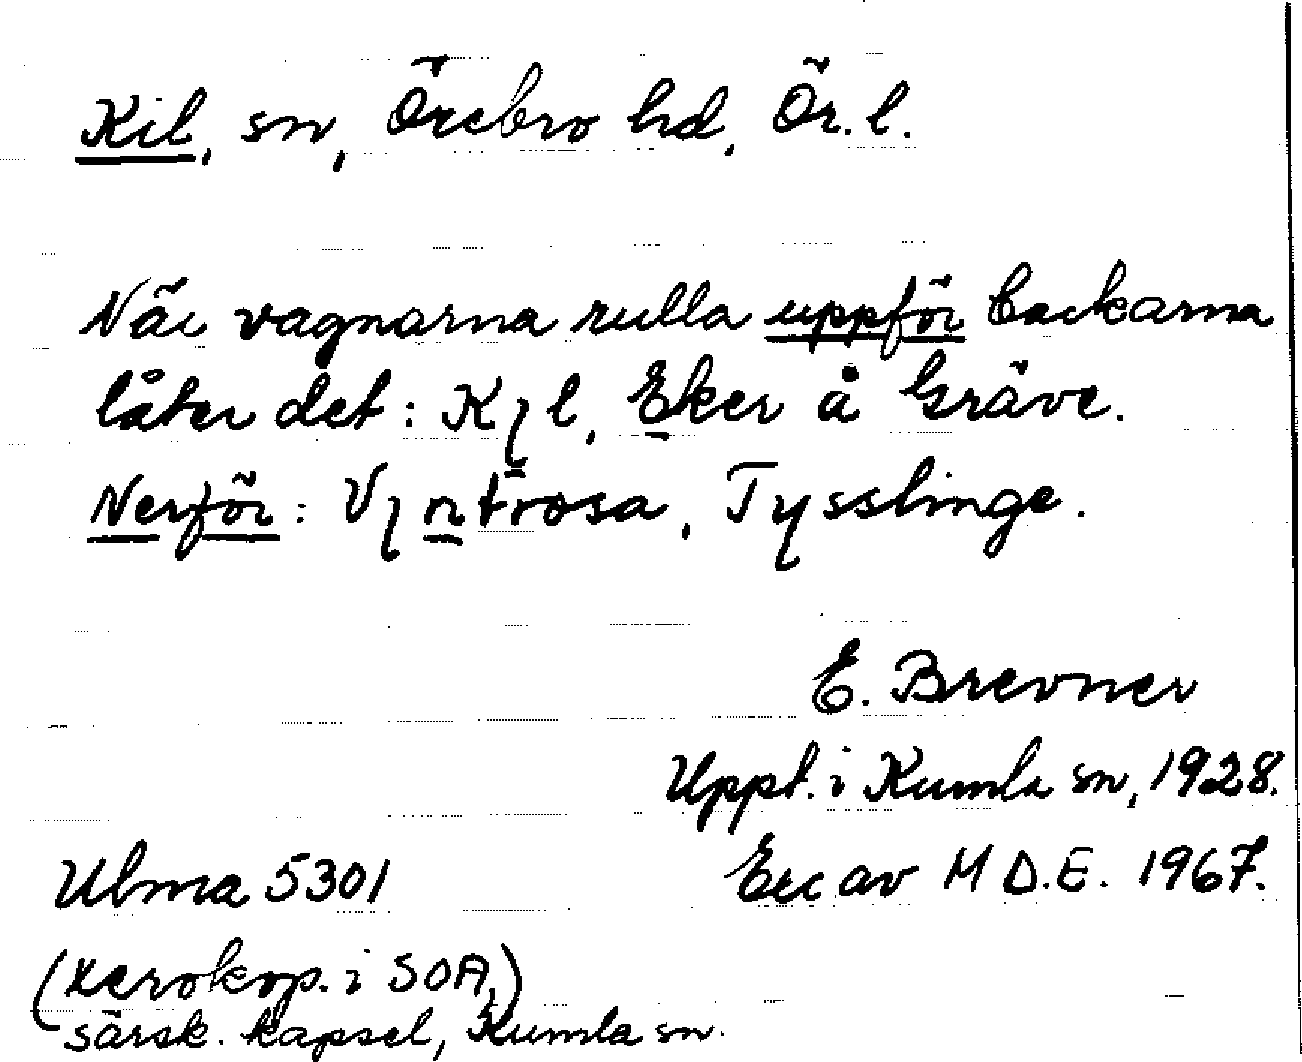 Kil, sn, Örebro hd, Ör. l.
När vagnarna rulla uppför backarna
låter det: Kɿl, Eker å Gräve.
Nerför: Vɿntrosa, Tysslinge.
E. Brevner
Uppt. i Kumla sn, 1928.
Ulma 5301
Exc av M D.E. 1967.
(xerokop. i SOA,)
särsk. kapsel, Kumla sn.